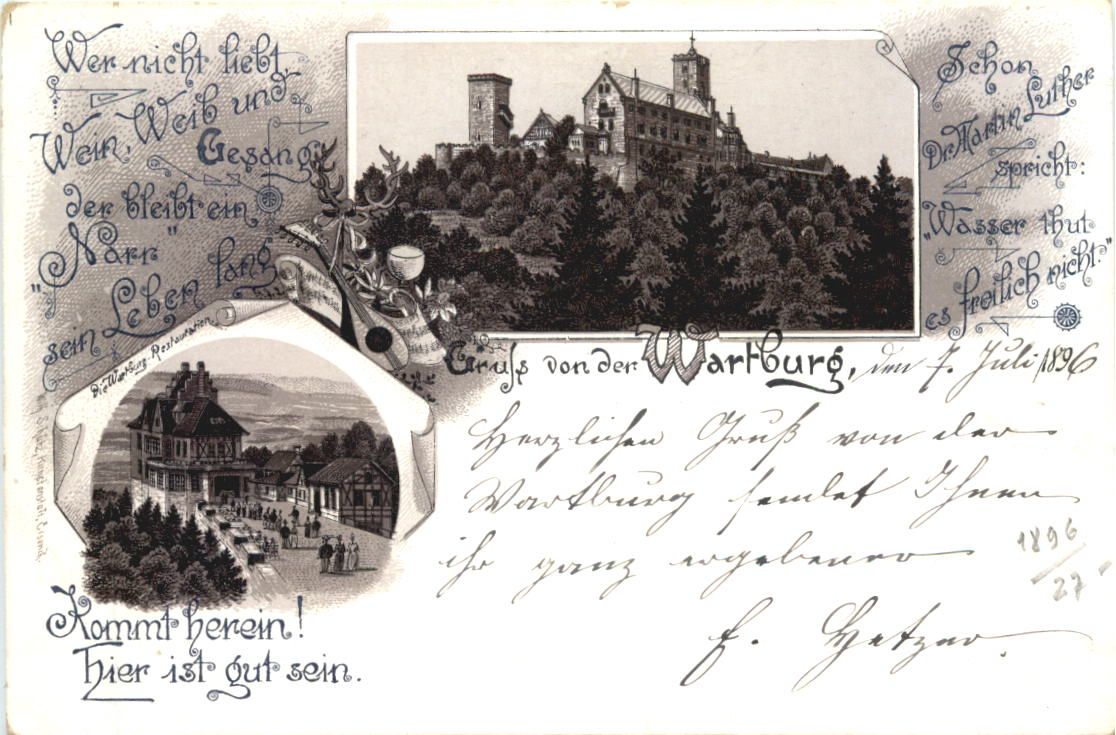 Wer nicht liebt
Wein, Weib und
Gesang
der bleibt ein
"Narr"
sein Leben lang
Schon
Dr. Martin Luther
spricht:
"Wasser thut
es freilich nicht"
Die Wartburg-Restauration.
Gruss von der Wartburg, den 7. Juli 1896
Herzlichen Gruß von der
Wartburg sendet Ihnen
ihr ganz ergebener
E. Hetzer.
1896
27
Kommt herein!
Hier ist gut sein.